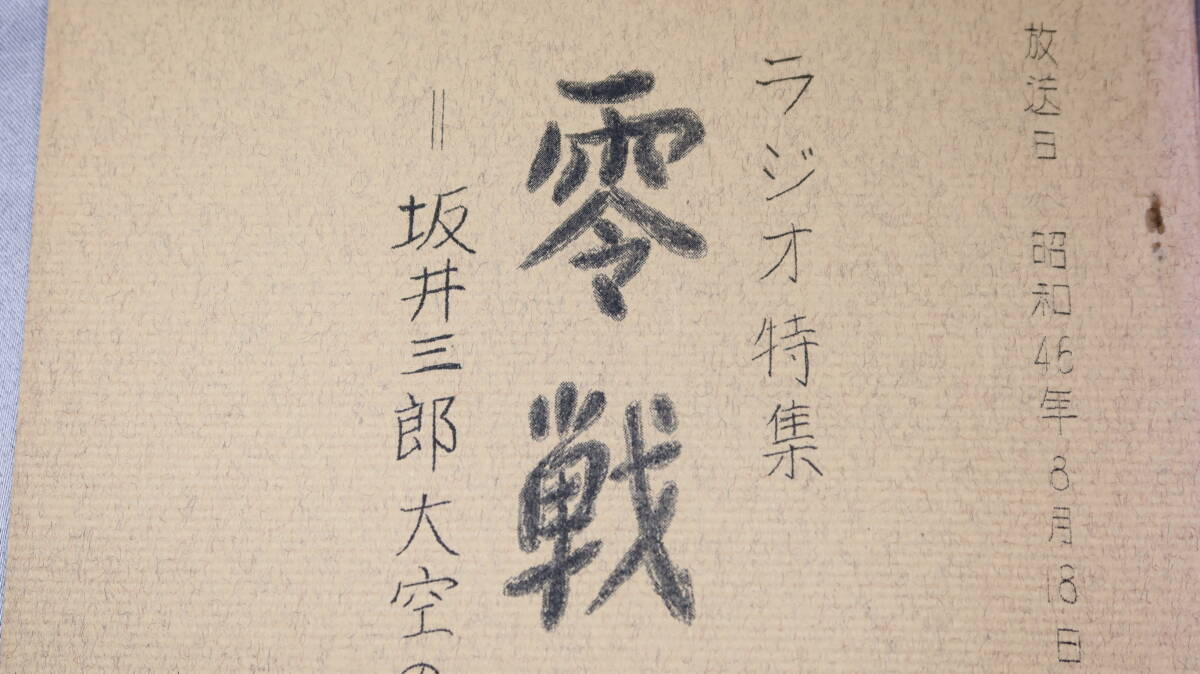 放送日 昭和46年8月18日
ラジオ特集
零戦
＝坂井三郎大空の